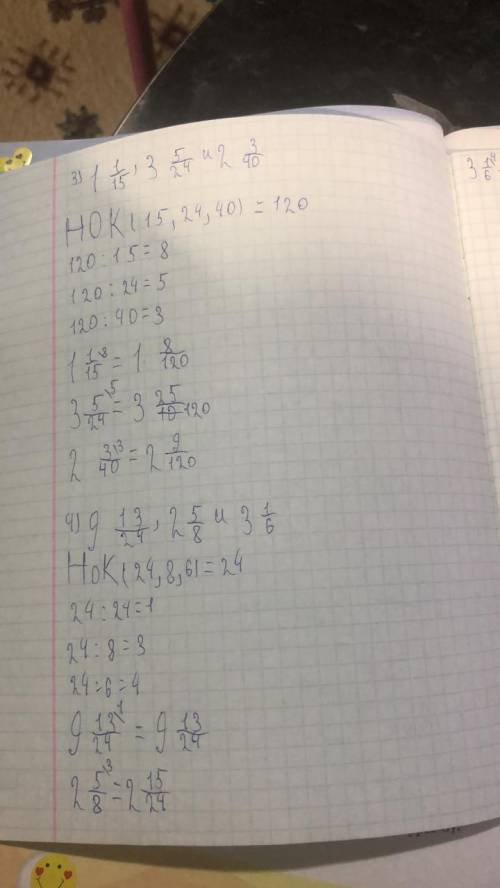 3) 1 1/15, 3 5/24 и 2 3/40
НОК(15, 24, 40) = 120
120 : 15 = 8
120 : 24 = 5
120 : 40 = 3
1 1\8/15 = 1 8/120
3 5\5/24 = 3 25/120
2 3\3/40 = 2 9/120
4) 9 13/24, 2 5/8 и 3 1/6
НоК(24, 8, 6) = 24
24 : 24 = 1
24 : 8 = 3
24 : 6 = 4
9 13\1/24 = 9 13/24
2 5\3/8 = 2 15/24
3 1\4/6 =